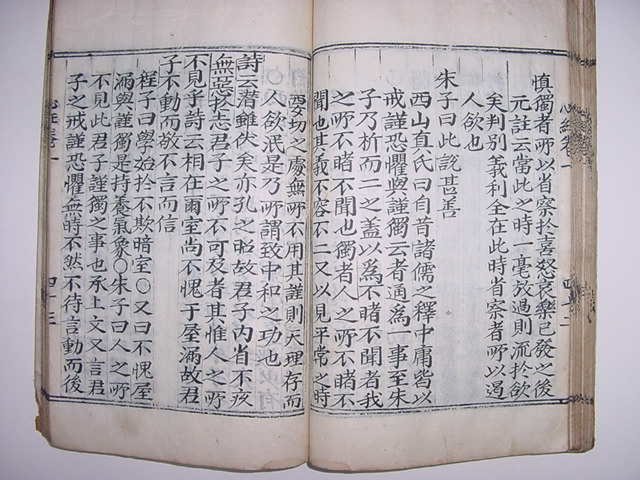 心經卷一
四十二
愼獨者所以省察於喜怒哀樂已發之後
元註云當此之時一毫放過則流於欲
矣判別義利全在此時省察者所以遏
人欲也
朱子曰此說甚善
西山眞氏曰自昔諸儒之釋中庸皆以
戒謹恐懼與謹獨云者通爲一事至朱
子乃析而二之蓋以爲不睹不聞者我
之所不睹不聞也獨者人之所不睹不
聞也其義不容不二又以見平常之時
要切之處無所不用其謹則天理存而
人欲泯是乃所謂致中和之功也
詩云潛雖伏矣亦孔之昭故君子內省不疚
無惡於志君子之所不可及者其惟人之所
不見乎詩云相在爾室尙不愧于屋漏故君
子不動而敬不言而信
程子曰學始於不欺暗室○又曰不愧屋
漏與謹獨是持養氣象○朱子曰人之所
不見此君子謹獨之事也承上文又言君
子之戒謹恐懼無時不然不待言動而後
心經卷一
四十三